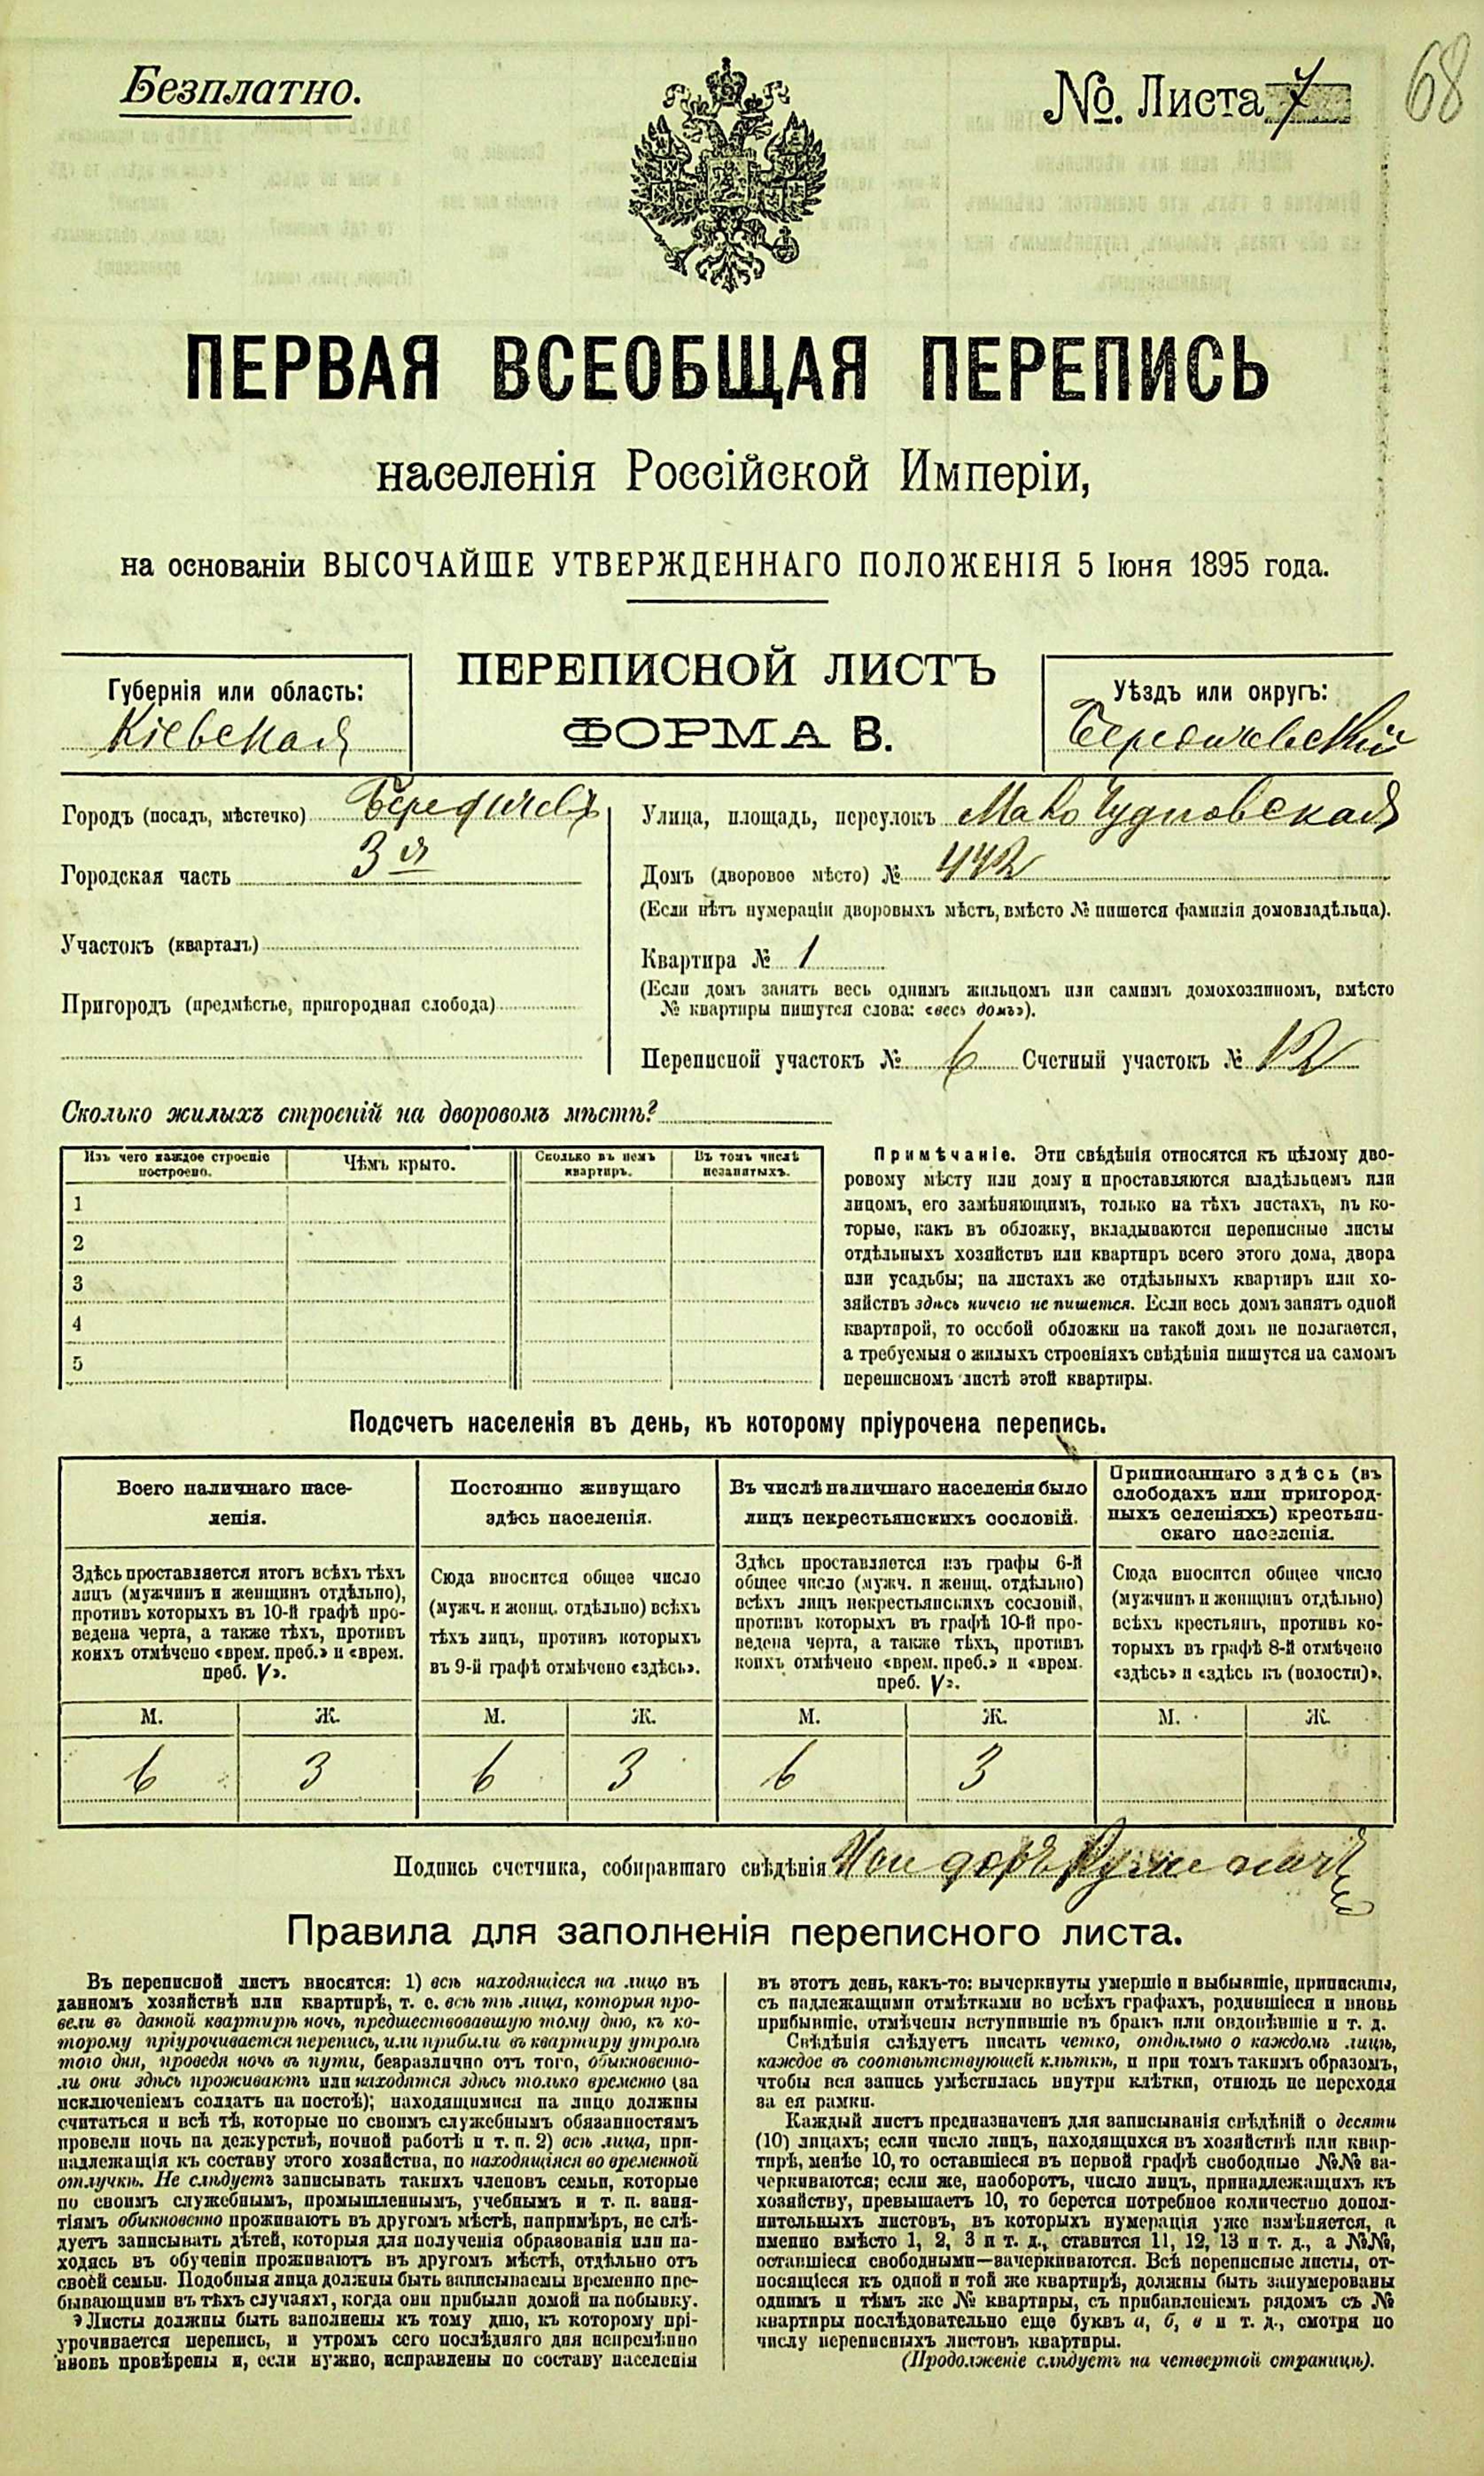 Безплатно.
№. Листа 7
68
ПЕРВАЯ ВСЕОБЩАЯ ПЕРЕПИСЬ
населенія Россійской Имперіи,
на основаніи ВЫСОЧАЙШЕ УТВЕРЖДЕННАГО ПОЛОЖЕНІЯ 5 Іюня 1895 года.
Губернія или область:
Кіевская
ПЕРЕПИСНОЙ ЛИСТЪ
ФОРМА В.
Уѣздъ или округъ:
Бердичевскій
Городъ (посадъ, мѣстечко) Бердичевъ
Городская часть 3я
Участокъ (кварталъ)
Пригородъ (предмѣстье, пригородная слобода)
Улица, площадь, переулокъ Мало Чудновская
Домъ (дворовое мѣсто) № 442
(Если нѣтъ нумераціи дворовыхъ мѣстъ, вмѣсто № пишется фамилія домовладѣльца).
Квартира № 1
(Если домъ занятъ весь однимъ жильцомъ или самимъ домохозяиномъ, вмѣсто
№ квартиры пишутся слова: «весь домъ»).
Переписной участокъ № 6 Счетный участокъ № 12
Сколько жилыхъ строеній на дворовомъ мѣстѣ?
Изъ чего каждое строеніе
построено.
Чѣмъ крыто.
Сколько въ немъ
квартиръ.
Въ томъ числѣ
незанятыхъ.
1
2
3
4
5
Примѣчаніе. Эти свѣдѣнія относятся къ цѣлому дво-
ровому мѣсту или дому и проставляются владѣльцемъ или
лицомъ, его замѣняющимъ, только на тѣхъ листахъ, въ ко-
торые, какъ въ обложку, вкладываются переписные листы
отдѣльныхъ хозяйствъ или квартиръ всего этого дома, двора
или усадьбы; на листахъ же отдѣльныхъ квартиръ или хо-
зяйствъ здѣсь ничего не пишется. Если весь домъ занятъ одной
квартирой, то особой обложки на такой домъ не полагается,
а требуемыя о жилыхъ строеніяхъ свѣдѣнія пишутся на самомъ
переписномъ листѣ этой квартиры.
Подсчетъ населенія въ день, къ которому пріурочена перепись.
Всего наличнаго насе-
ленія.
Постоянно живущаго
здѣсь населенія.
Въ числѣ наличнаго населенія было
лицъ некрестьянскихъ сословій.
Приписаннаго здѣсь (въ
слободахъ или пригород-
ныхъ селеніяхъ) крестьян-
скаго населенія.
Здѣсь проставляется итогъ всѣхъ тѣхъ
лицъ (мужчинъ и женщинъ отдѣльно),
противъ которыхъ въ 10-й графѣ про-
ведена черта, а также тѣхъ, противъ
коихъ отмѣчено «врем. преб.» и «врем.
преб. V».
Сюда вносится общее число
(мужч. и женщ. отдѣльно) всѣхъ
тѣхъ лицъ, противъ которыхъ
въ 9-й графѣ отмѣчено «здѣсь».
Здѣсь проставляется изъ графы 6-й
общее число (мужч. и женщ. отдѣльно)
всѣхъ лицъ некрестьянскихъ сословій,
противъ которыхъ въ графѣ 10-й про-
ведена черта, а также тѣхъ, противъ
коихъ отмѣчено «врем. преб.» и «врем.
преб. V».
Сюда вносится общее число
(мужчинъ и женщинъ отдѣльно)
всѣхъ крестьянъ, противъ ко-
торыхъ въ графѣ 8-й отмѣчено
«здѣсь» и «здѣсь къ (волости)».
М. Ж. М. Ж. М. Ж. М. Ж.
6 3 6 3 6 3
Подпись счетчика, собиравшаго свѣдѣнія
Правила для заполненія переписного листа.
Въ переписной листъ вносятся: 1) всѣ находящіеся на лицо въ
данномъ хозяйствѣ или квартирѣ, т. е. всѣ тѣ лица, которыя про-
вели въ данной квартирѣ ночь, предшествовавшую тому дню, къ ко-
торому пріурочивается перепись, или прибыли въ квартиру утромъ
того дня, проведя ночь въ пути, безразлично отъ того, обыкновенно-
ли они здѣсь проживаютъ или находятся здѣсь только временно (за
исключеніемъ солдатъ на постоѣ); находящимися на лицо должны
считаться и всѣ тѣ, которые по своимъ служебнымъ обязанностямъ
провели ночь на дежурствѣ, ночной работѣ и т. п. 2) всѣ лица, при-
надлежащія къ составу этого хозяйства, но находящіяся во временной
отлучкѣ. Не слѣдуетъ записывать такихъ членовъ семьи, которые
по своимъ служебнымъ, промышленнымъ, учебнымъ и т. п. заня-
тіямъ обыкновенно проживаютъ въ другомъ мѣстѣ, напримѣръ, не слѣ-
дуетъ записывать дѣтей, которыя для полученія образованія или на-
ходясь въ обученіи проживаютъ въ другомъ мѣстѣ, отдѣльно отъ
своей семьи. Подобныя лица должны быть записываемы временно пре-
бывающими въ тѣхъ случаяхъ, когда они прибыли домой на побывку.
Листы должны быть заполнены къ тому дню, къ которому прі-
урочивается перепись, и утромъ сего послѣдняго дня непремѣнно
вновь провѣрены и, если нужно, исправлены по составу населенія
въ этотъ день, какъ-то: вычеркнуты умершіе и выбывшіе, приписаны,
съ надлежащими отмѣтками во всѣхъ графахъ, родившіеся и вновь
прибывшіе, отмѣчены вступившіе въ бракъ или овдовѣвшіе и т. д.
Свѣдѣнія слѣдуетъ писать четко, отдѣльно о каждомъ лицѣ,
каждое въ соотвѣтствующей клѣткѣ, и при томъ такимъ образомъ,
чтобы вся запись умѣстилась внутри клѣтки, отнюдь не переходя
за ея рамки.
Каждый листъ предназначенъ для записыванія свѣдѣній о десяти
(10) лицахъ; если число лицъ, находящихся въ хозяйствѣ или квар-
тирѣ, менѣе 10, то оставшіеся въ первой графѣ свободные №№ за-
черкиваются; если же, наоборотъ, число лицъ, принадлежащихъ къ
хозяйству, превышаетъ 10, то берется потребное количество допол-
нительныхъ листовъ, въ которыхъ нумерація уже измѣняется, а
именно вмѣсто 1, 2, 3 и т. д., ставится 11, 12, 13 и т. д., а №№,
оставшіеся свободными—зачеркиваются. Всѣ переписные листы, от-
носящіеся къ одной и той же квартирѣ, должны быть занумерованы
однимъ и тѣмъ же № квартиры, съ прибавленіемъ рядомъ съ №
квартиры послѣдовательно еще буквъ а, б, в и т. д., смотря по
числу переписныхъ листовъ квартиры.
(Продолженіе слѣдуетъ на четвертой страницѣ).